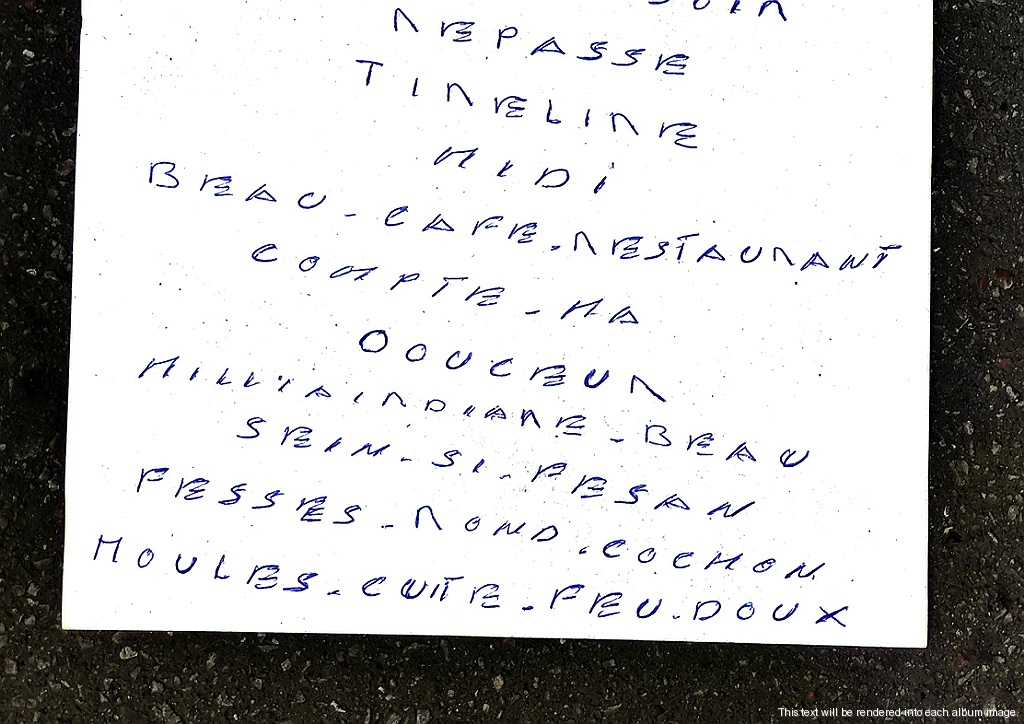 SOIR
REPASSE
TIRELIRE
MIDI
BEAU-CAFE.RESTAURANT
COMPTE-MA
DOUCEUR
MILLIAIRDIARE-BEAU
SEIN-SI.FESAN
FESSES-ROND.COCHON
MOULES-CUITE-FEU.DOUX
This text will be rendered into each album image